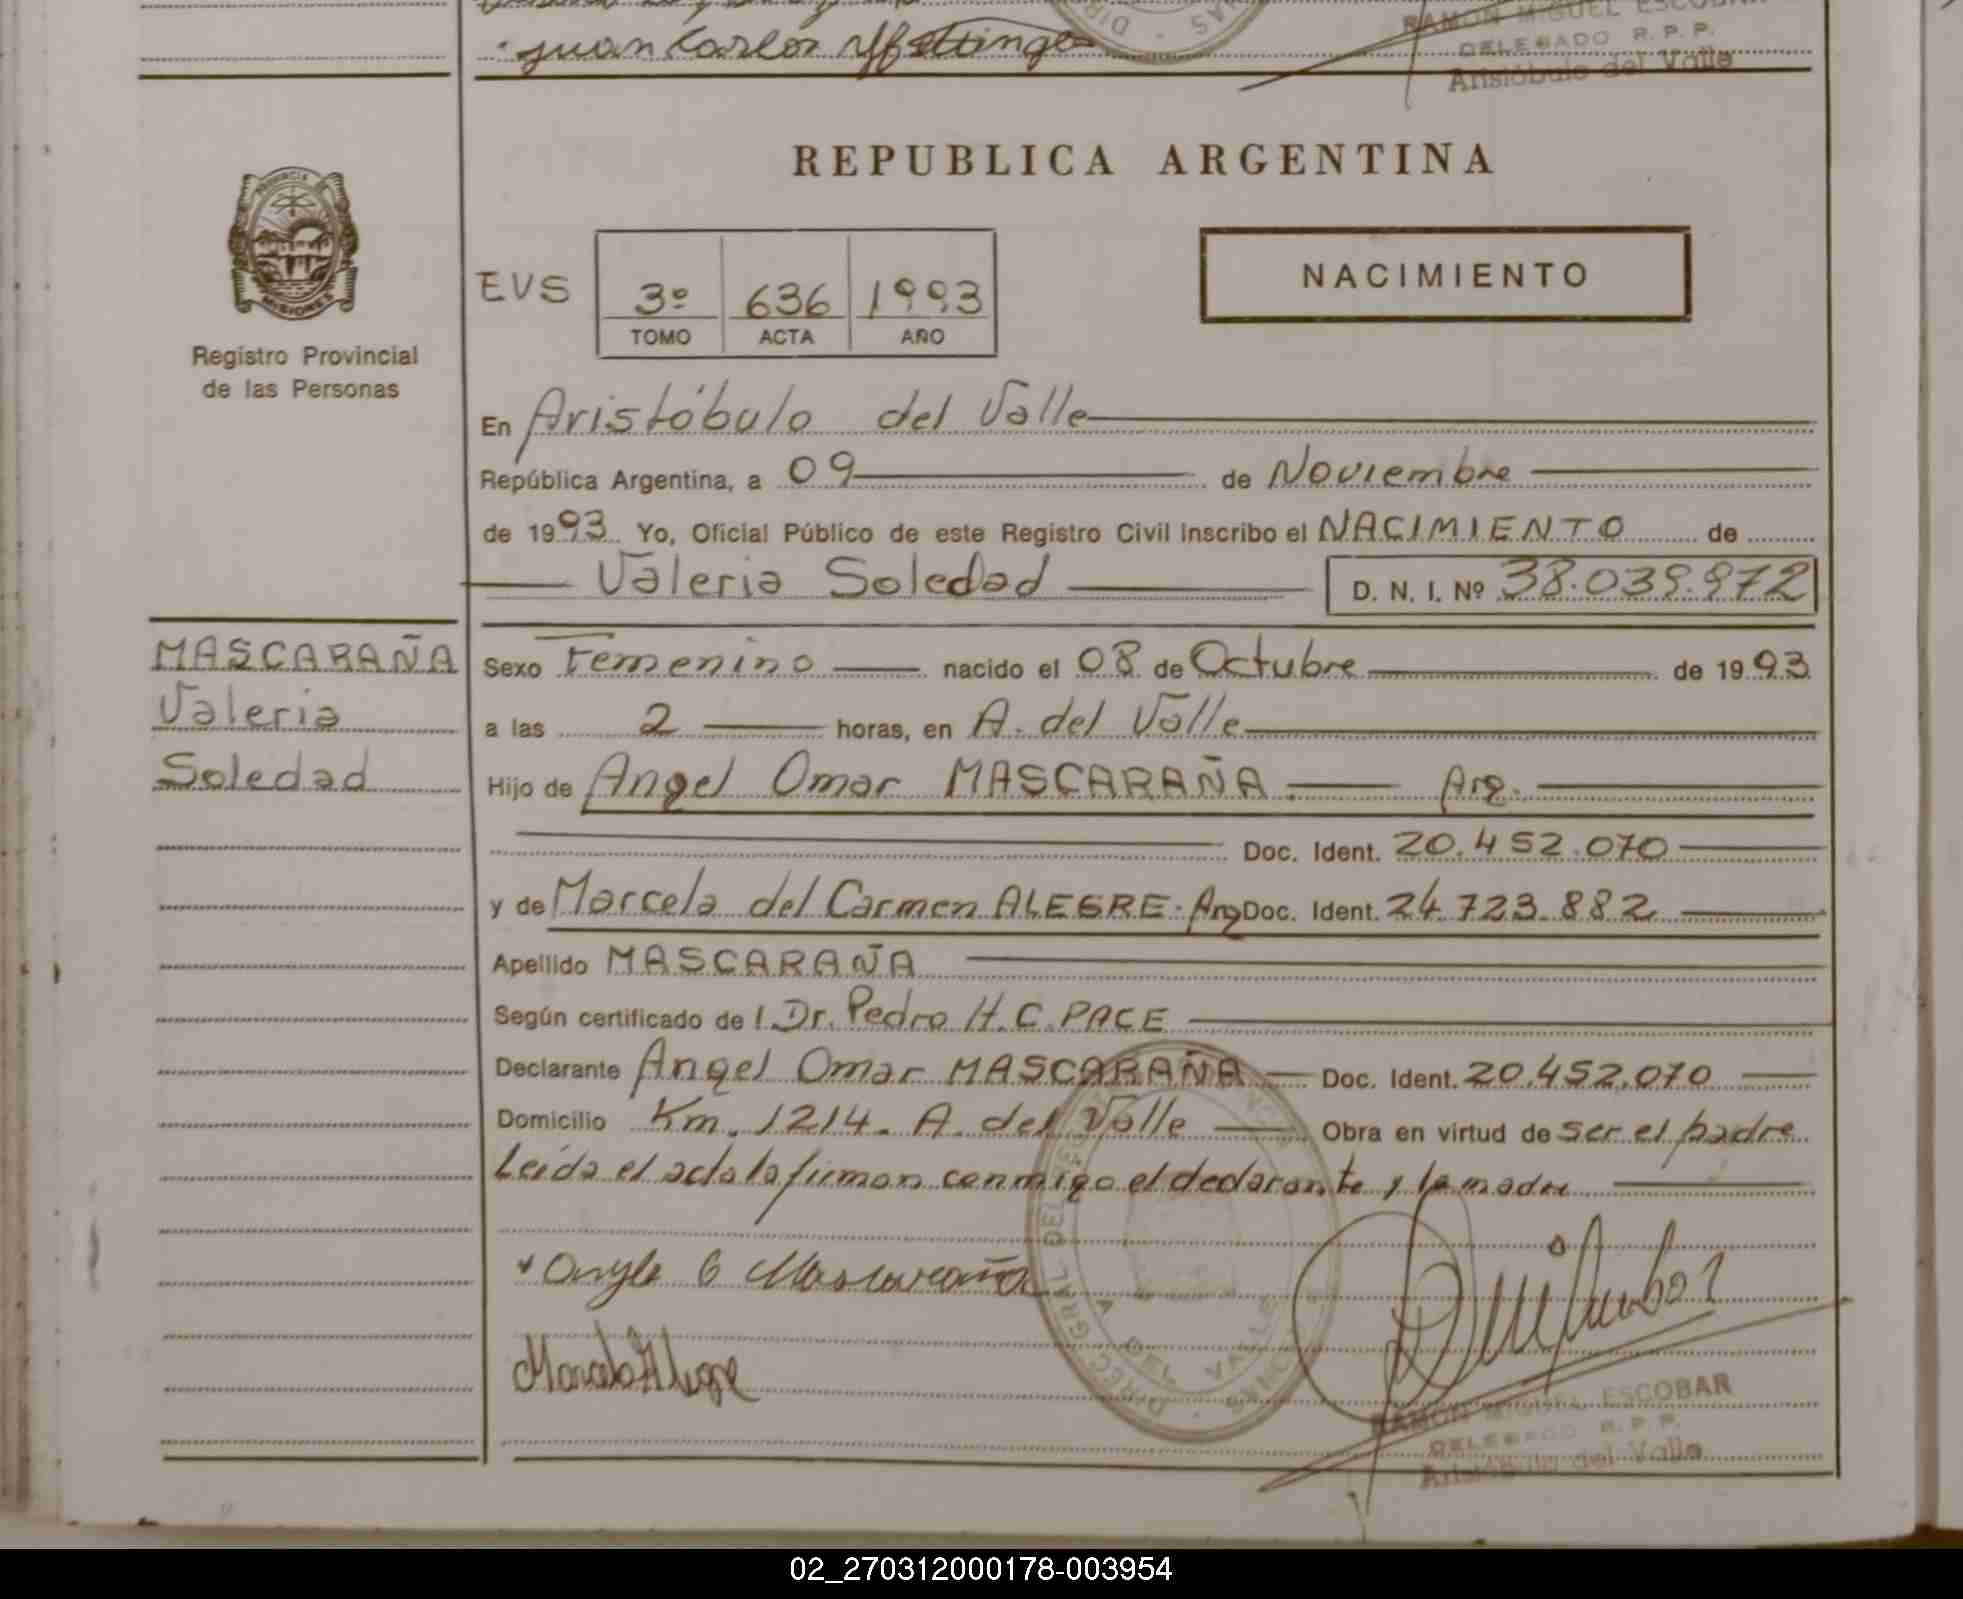 Juan Carlos
RAMON MIGUEL ESCOBAR
DELEGADO R. P. P.
Aristóbulo del Valle
REPUBLICA ARGENTINA
PROVINCIA
MISIONES
Registro Provincial
de las Personas
NACIMIENTO
EVS 3º 636 1993
TOMO ACTA AÑO
En Aristóbulo del Valle
República Argentina, a 09 de Noviembre
de 1993 Yo, Oficial Público de este Registro Civil inscribo el NACIMIENTO de
Valeria Soledad D. N. I. Nº 38.039.972
MASCARAÑA
Valeria
Soledad
Sexo Femenino nacido el 08 de Octubre de 1993
a las 2 horas, en A. del Valle
Hijo de Angel Omar MASCARAÑA Arg.
Doc. Ident. 20.452.070
y de Marcela del Carmen ALEGRE. Arg Doc. Ident. 24.723.882
Apellido MASCARAÑA
Según certificado de l Dr. Pedro H. C. PACE
Declarante Angel Omar MASCARAÑA Doc. Ident. 20.452.070
Domicilio Km. 1214. A. del Valle Obra en virtud de ser el padre
Leída el acta la firman conmigo el declarante y la madre
Angel O Mascaraña
Marcela Alegre
A. DEL VALLE
RAMON MIGUEL ESCOBAR
DELEGADO R. P. P.
Aristóbulo del Valle
02_270312000178-003954